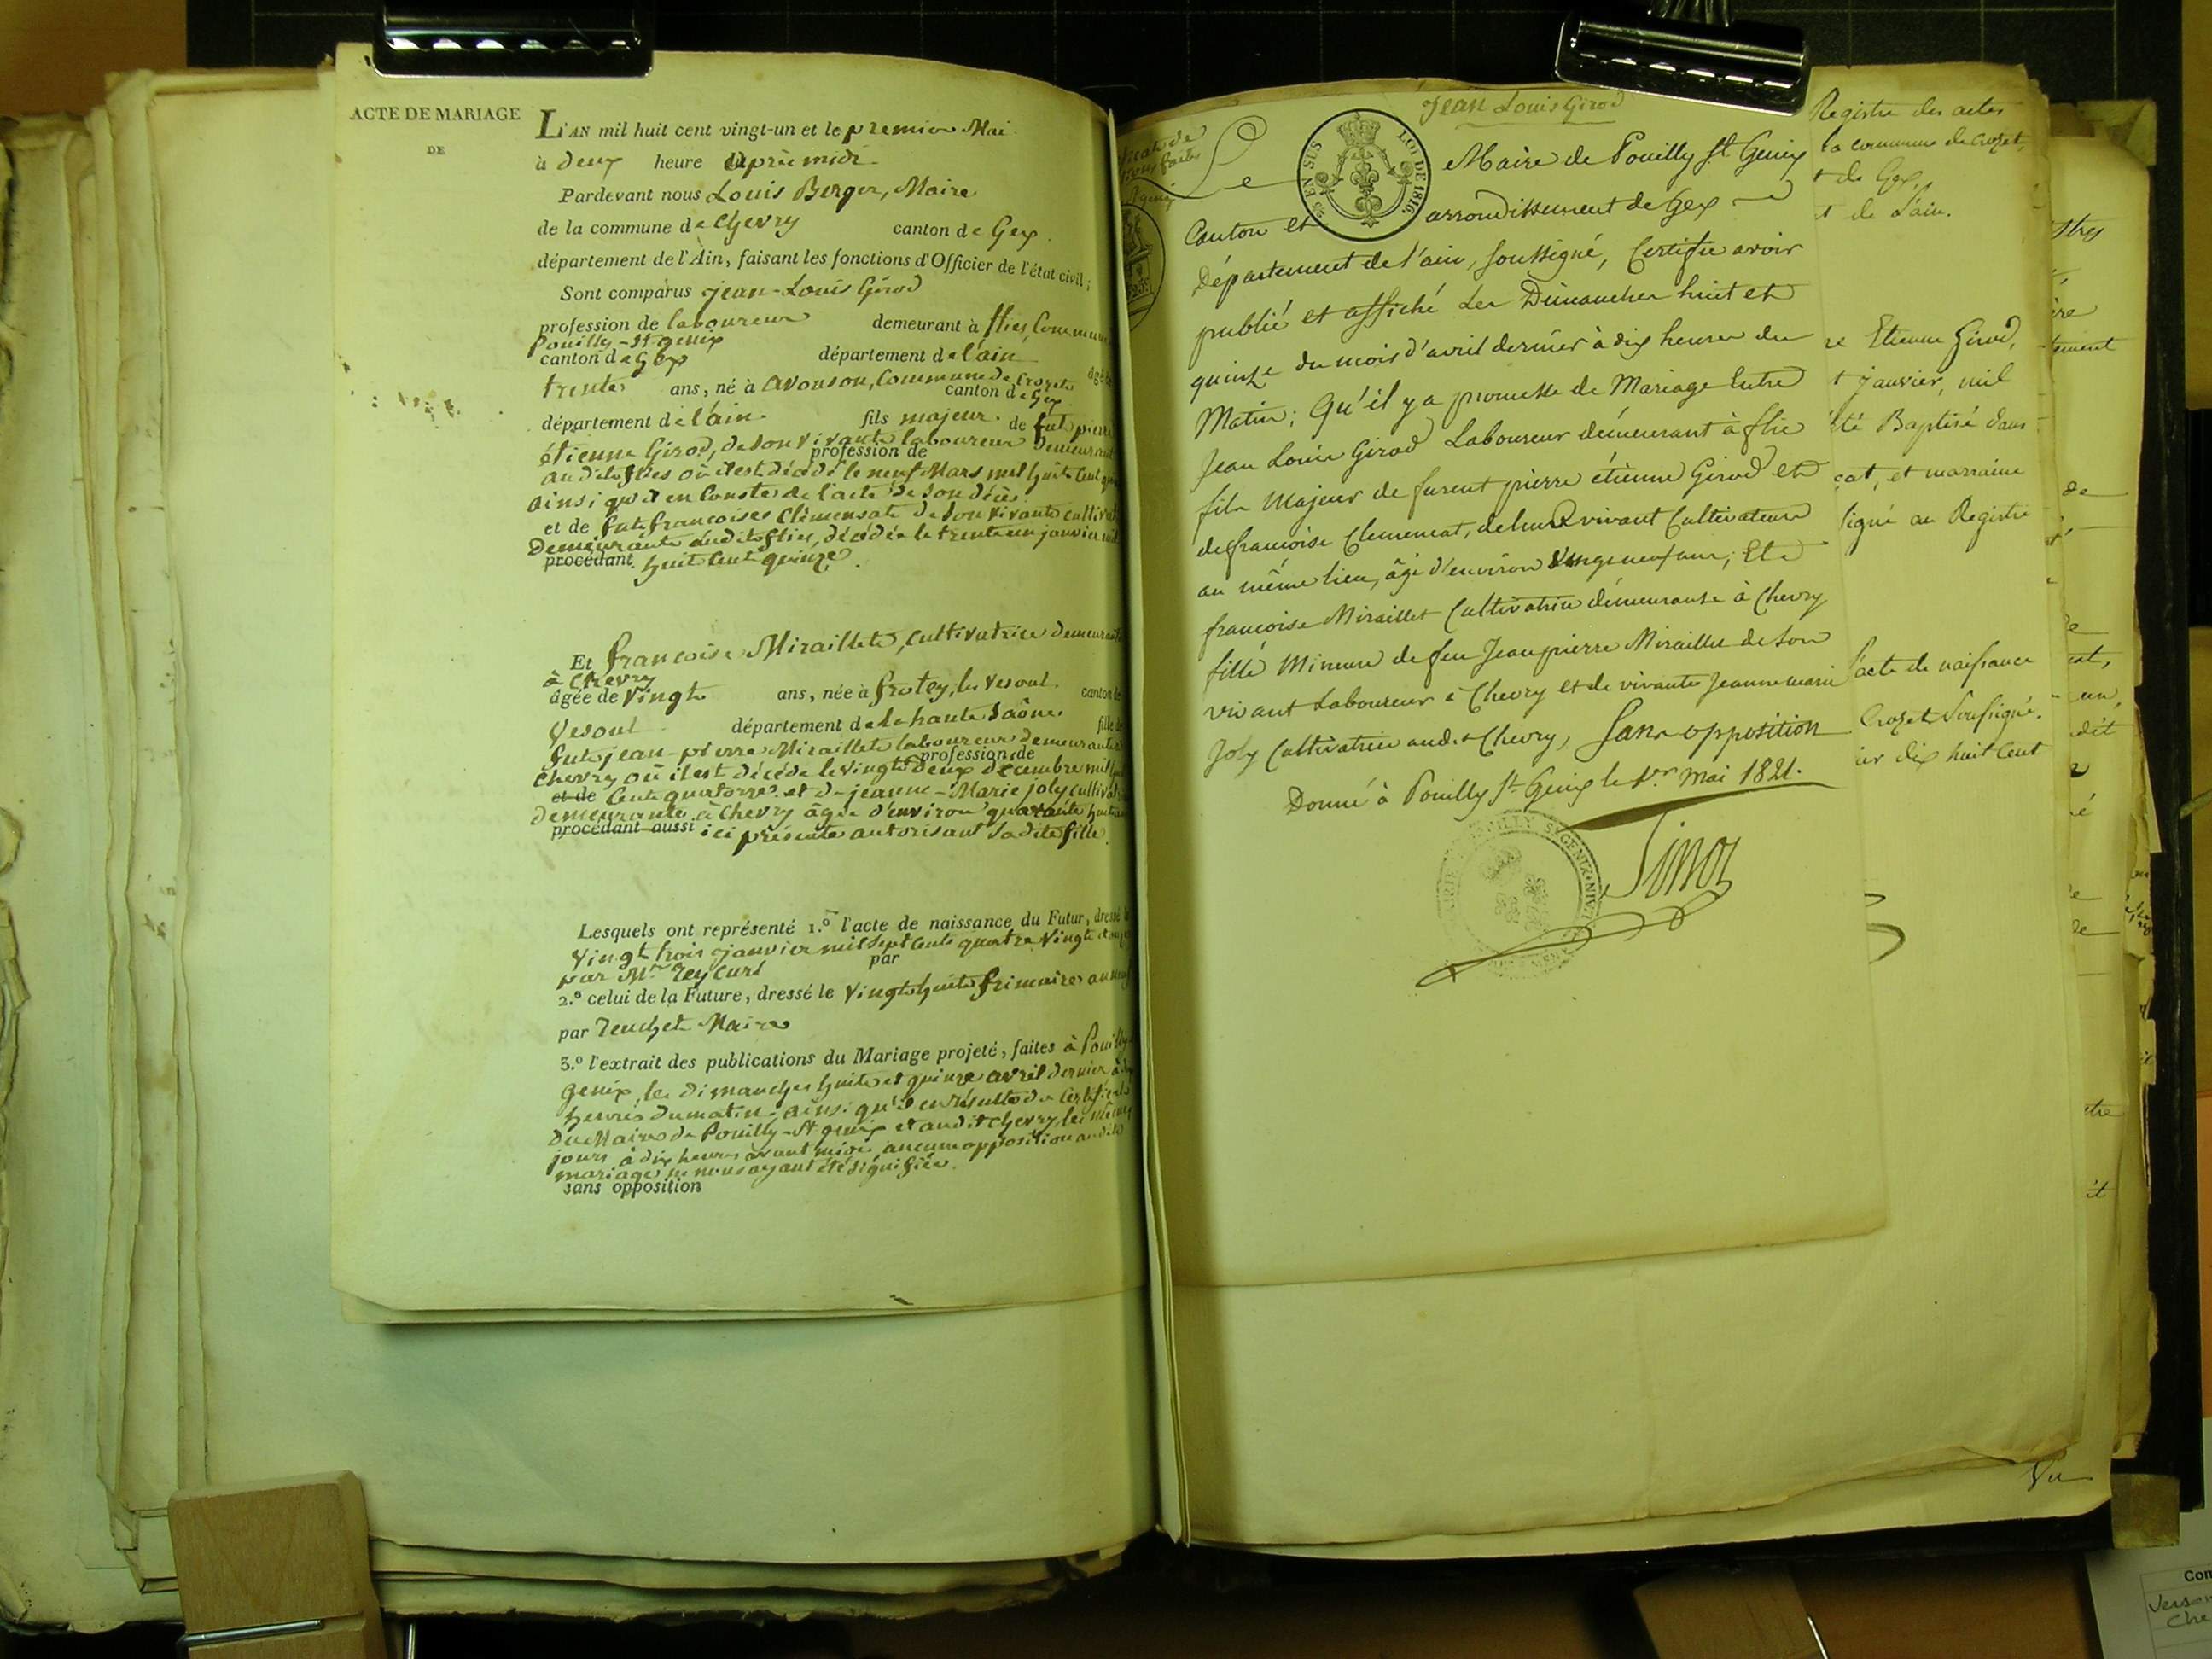 ACTE DE MARIAGE
DE
L'AN mil huit cent vingt-un et le premier Mai
à deux heure après midi
Pardevant nous Louis Berger, Maire
de la commune de Chevry canton de Gex.
département de l'Ain, faisant les fonctions d'Officier de l'état civil;
Sont comparus jean-Louis Girod
profession de laboureur demeurant à flies Commune
Pouilly-St-genix
canton de Gex département de l'ain
trente ans, né à avouson, Commune de Crozet
canton de Gex
département de l'ain. fils majeur. de fut pierre
étienne Girod, de son vivant laboureur demeurant
profession de
audit flies où il est décédé le neuf Mars mil huit Cent
ainsi qu'il en Conste de l'acte de son décès.
et de fut françoise Clèmensat de son vivant
Demeurante audit flies, décédée le trente un janvier mil
procédant huit Cent quinze.
Et françoise Miraillet, cultivatrice demeurante
à Chevry
âgée de Vingt ans, née à frotey, les vesoul. canton de
Vesoul département de la haute Saône fille de
fut jean-pierre Miraillet laboureur demeurant à
profession de
Chevry où il est décédé le vingt Deux décembre mil
et de Cent quatorze et de jeanne-Marie joly
demeurante à Chevry âgée d'environ quarante
procédant aussi ici présente autorisant sadite fille.
Lesquels ont représenté 1.º l'acte de naissance du Futur, dressé le
Vingt trois janvier mil sept Cent quatre Vingt
par Mr Rey Curé par
2.º celui de la Future, dressé le Vingt huit frimaire an
par Maire
3.º l'extrait des publications du Mariage projeté, faites à Pouilly
genix, les dimanches huit et quinze avril dernier à
heures du matin. ainsi qu'il en résulte du Certificat
du Maire de Pouilly-St genix et audit Chevry les mêmes
jours à dix heures avant midi, aucune opposition audit
mariage ne nous ayant été signifiée.
sans opposition
Jean Louis Girod
EN SUS
LOI DE 1816
Le Maire de Pouilly St Genix
Canton et arrondissement de Gex
Département de l'ain, soussigné, Certifie avoir
publié et affiché les Dimanches huit et
quinze du mois d'avril dernier à dix heures du
Matin; Qu'il y a promesse de Mariage Entre
Jean Louis Girod Laboureur démeurant à flie
fils Majeur de furent pierre étienne Girod et
de françoise Clemencat, de leur vivant Cultivateurs
au même lieu, âgé d'environ Vingt neuf ans; Et
françoise Miraillet Cultivatrice démeurante à Chevry
fille Mineure de feu Jean pierre Miraillet de son
vivant Laboureur à Chevry et de vivante Jeanne marie
Joly Cultivatrice aud.t Chevry, Sans opposition
Donné à Pouilly St Genix le 1.er Mai 1821.
Registre des actes
la commune de Crozet,
t de Gex,
t de l'ain.
re Etienne Girod,
t janvier, mil
été Baptisé dans
çat, et marraine
signé au Registre
l'acte de naissance
Crozet Soussigné.
ier dix huit Cent
Vu